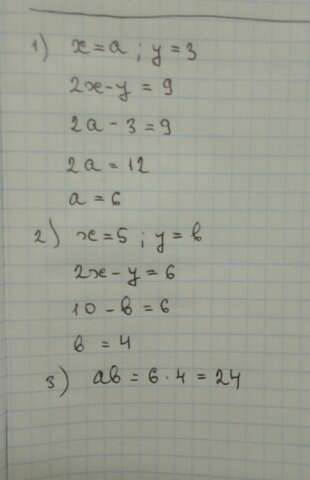 1) x = a ; y = 3
2x - y = 9
2a - 3 = 9
2a = 12
a = 6
2) x = 5 ; y = в
2x - y = 6
10 - в = 6
в = 4
3) aв = 6 · 4 = 24